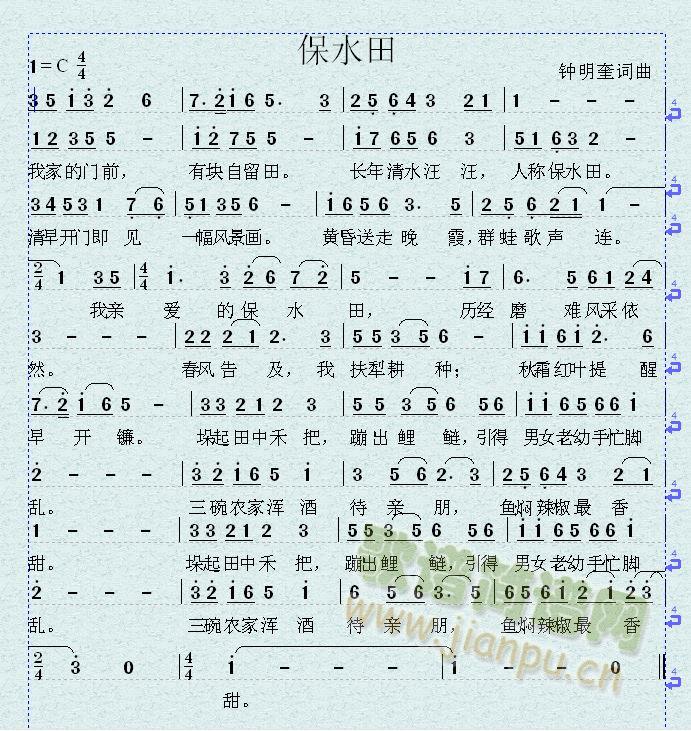 保水田
1=C 4/4
钟明奎词曲
35 i3 2 6 | 7. 2i6 5. 3 | 25 64 3 21 | 1 - - -
12 35 5 - | i2 75 5 - | i7 65 6 3 | 51 63 2 -
我家的门前， 有块自留田。 长年清水汪 汪， 人称保水田。
34 53 1 7 6 | 51 35 6 - | i6 56 3. 5 | 25 6 21 1 -
清早开门即 见 一幅风景画。 黄昏送走 晚 霞，群 蛙 歌 声 连。
2/4 1 35 | 4/4 i. 3 26 72 | 5 - - i7 | 6. 5 61 24
我亲 爱 的 保 水 田， 历经 磨 难风采依
3 - - - | 22 21 2. 3 | 55 35 6 - | ii 6i 2. 6
然。 春风 告 及， 我 扶犁耕 种； 秋霜红叶提 醒
7. 2 i6 5 - | 33 21 2 3 | 55 35 6 56 | ii 65 66 i
早 开 镰。 垛起田中禾 把， 蹦出 鲤 鲢，引得 男女老幼手忙脚
2 - - - | 32 i6 5 i | 3 56 2. 3 | 25 64 3 21
乱。 三碗农家浑 酒 待 亲 朋， 鱼焖辣椒最 香
1 - - - | 33 21 2 3 | 55 35 6 56 | ii 65 66 i
甜。 垛起田中禾 把， 蹦出鲤 鲢，引得 男女老幼手忙脚
2 - - - | 32 i6 5 i | 6 56 3. 5 | 65 61 2 i 23
乱。 三碗农家浑 酒 待 亲 朋， 鱼焖辣椒最 香
2/4 3 0 | 4/4 i - - - | i - - 0
甜。
www.jianpu.cn